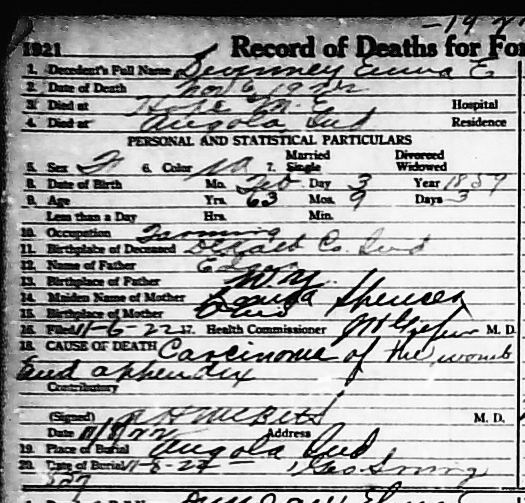 1921 Record of Deaths for
1. Decedent's Full Name Emma E
2. Date of Death Nov 6 1922
3. Died at Hospital
4. Died at Angola Ind Residence
PERSONAL AND STATISTICAL PARTICULARS
5. Sex F 6. Color W 7. Married Single Divorced Widowed
8. Date of Birth Mo. Feb Day 3 Year 1859
9. Age Yrs. 63 Mos. 9 Days 3
Less than a Day Hrs. Min.
10. Occupation Farming
11. Birthplace of Deceased DeKalb Co. Ind
12. Name of Father
13. Birthplace of Father N.Y.
14. Maiden Name of Mother Spencer
15. Birthplace of Mother Ohio
16. Filed 11-6-22 17. Health Commissioner M. D.
18. CAUSE OF DEATH Carcinoma of the womb
and appendix
Contributory
(Signed) M. D.
Date 11/8/22 Address
19. Place of Burial Angola Ind
20. Date of Burial 11-8-22